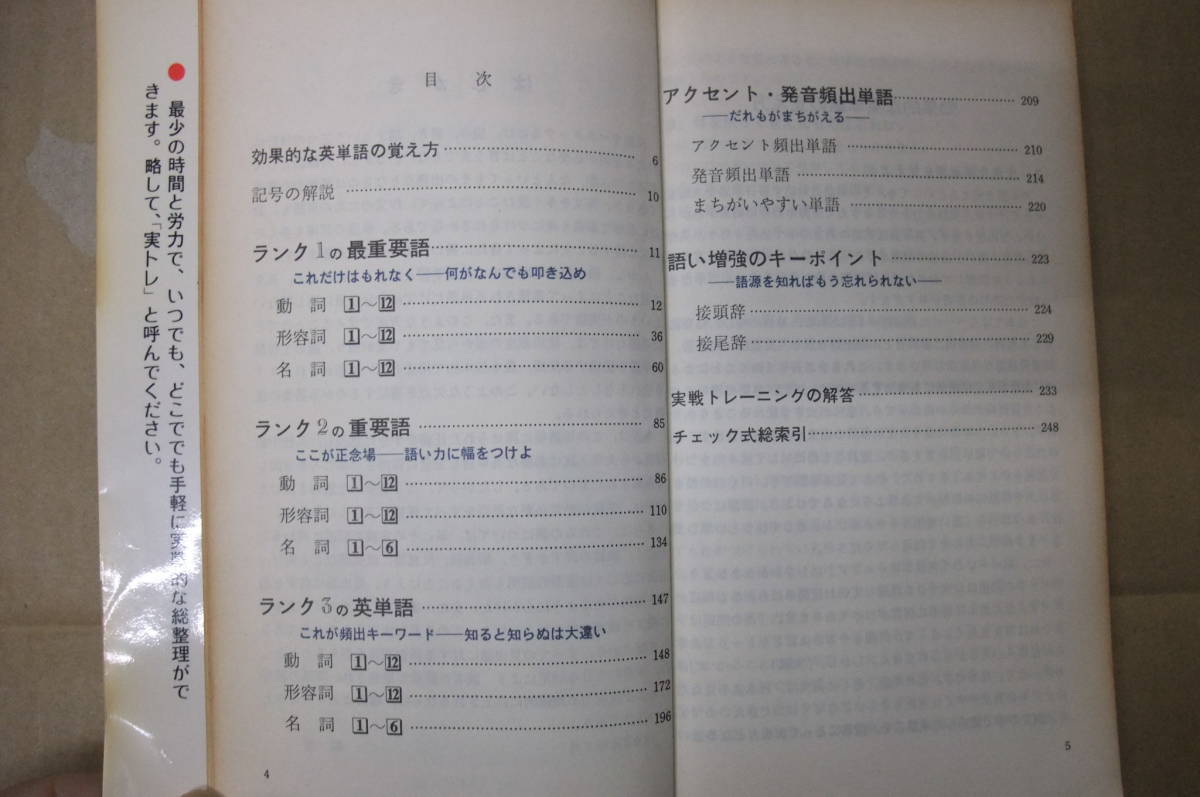 ● 最少の時間と労力で、いつでも、どこででも手軽に実戦的な総整理がで
きます。略して、「実トレ」と呼んでください。
目 次
効果的な英単語の覚え方 6
記号の解説 10
ランク1の最重要語 11
これだけはもれなく――何がなんでも叩き込め
動 詞 1～12 12
形容詞 1～12 36
名 詞 1～12 60
ランク2の重要語 85
ここが正念場――語い力に幅をつけよ
動 詞 1～12 86
形容詞 1～12 110
名 詞 1～6 134
ランク3の英単語 147
これが頻出キーワード――知ると知らぬは大違い
動 詞 1～12 148
形容詞 1～12 172
名 詞 1～6 196
4
アクセント・発音頻出単語 209
――だれもがまちがえる――
アクセント頻出単語 210
発音頻出単語 214
まちがいやすい単語 220
語い増強のキーポイント 223
――語源を知ればもう忘れられない――
接頭辞 224
接尾辞 229
実戦トレーニングの解答 233
チェック式総索引 248
5